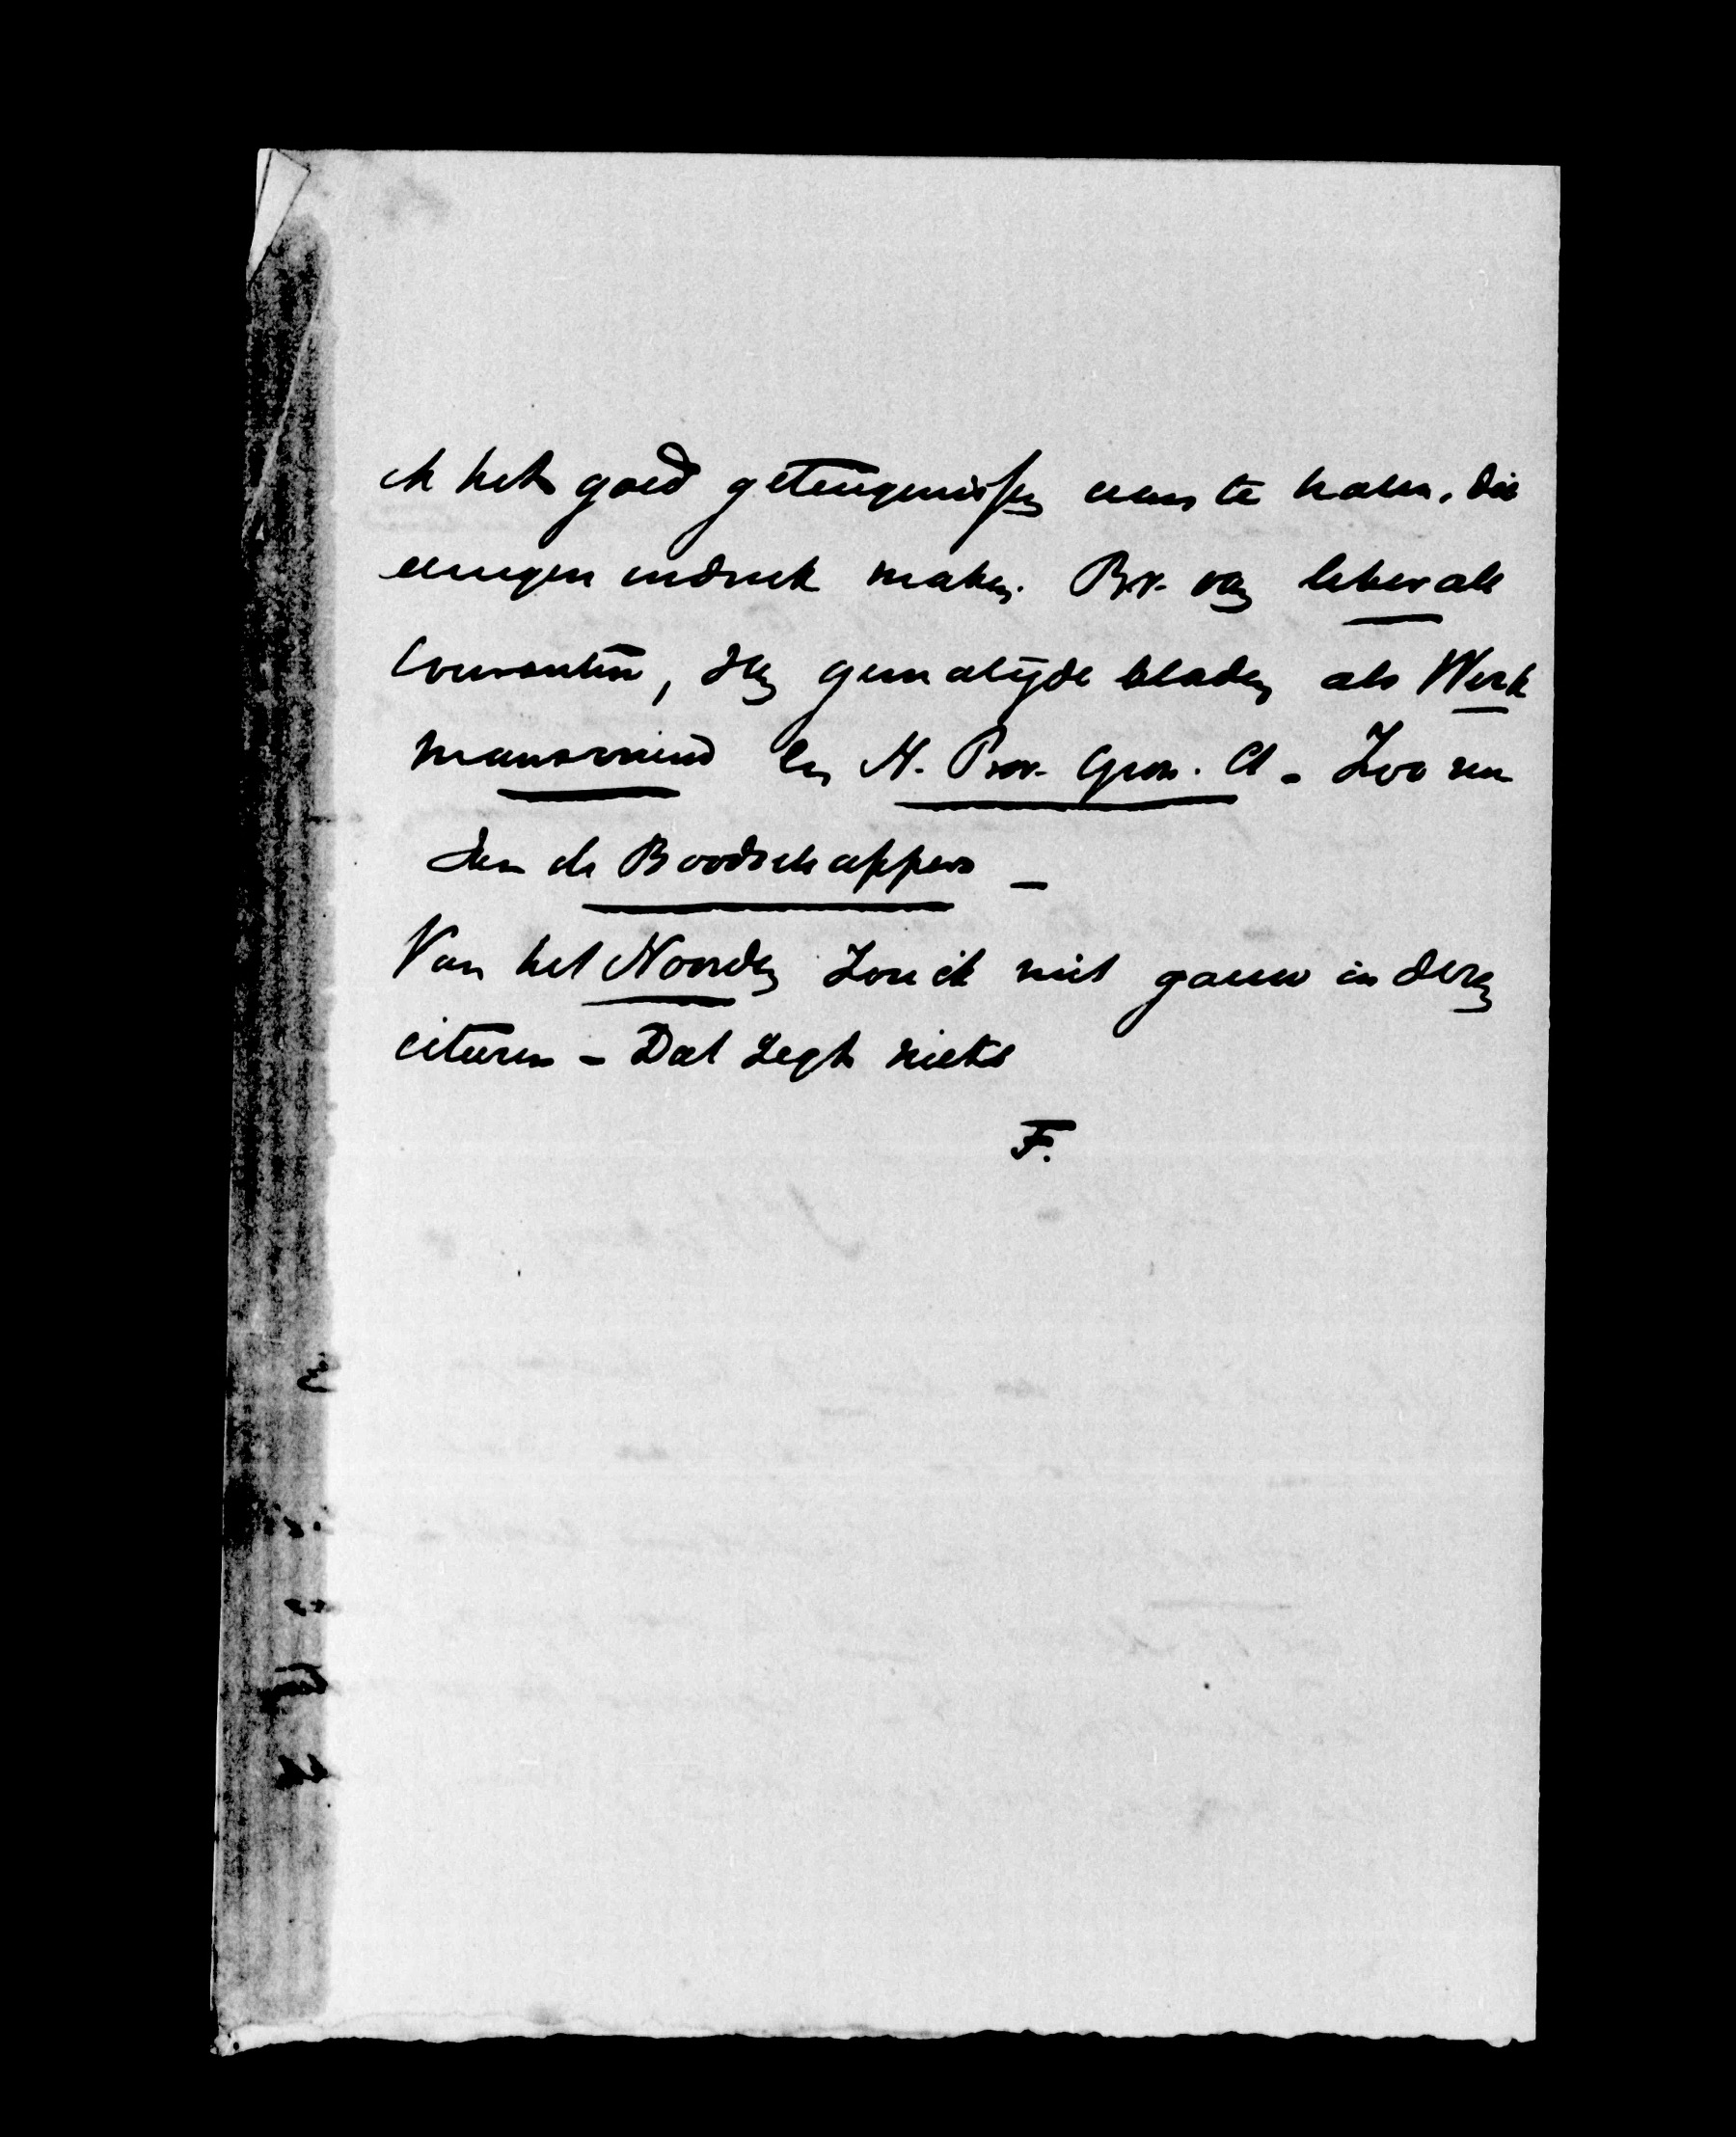 ik het goed getuigenissen aan te halen, die
eenigen indruk maken. B.v. van liberale
Couranten, dan gematigde bladen als Werk
mansvriend en N. Prov. Gron. Ct - Zoo ver
dan de Boodschapper -
Van het Noorden zou ik niet gauw in deze
citeeren - Dat zegt niets
F.